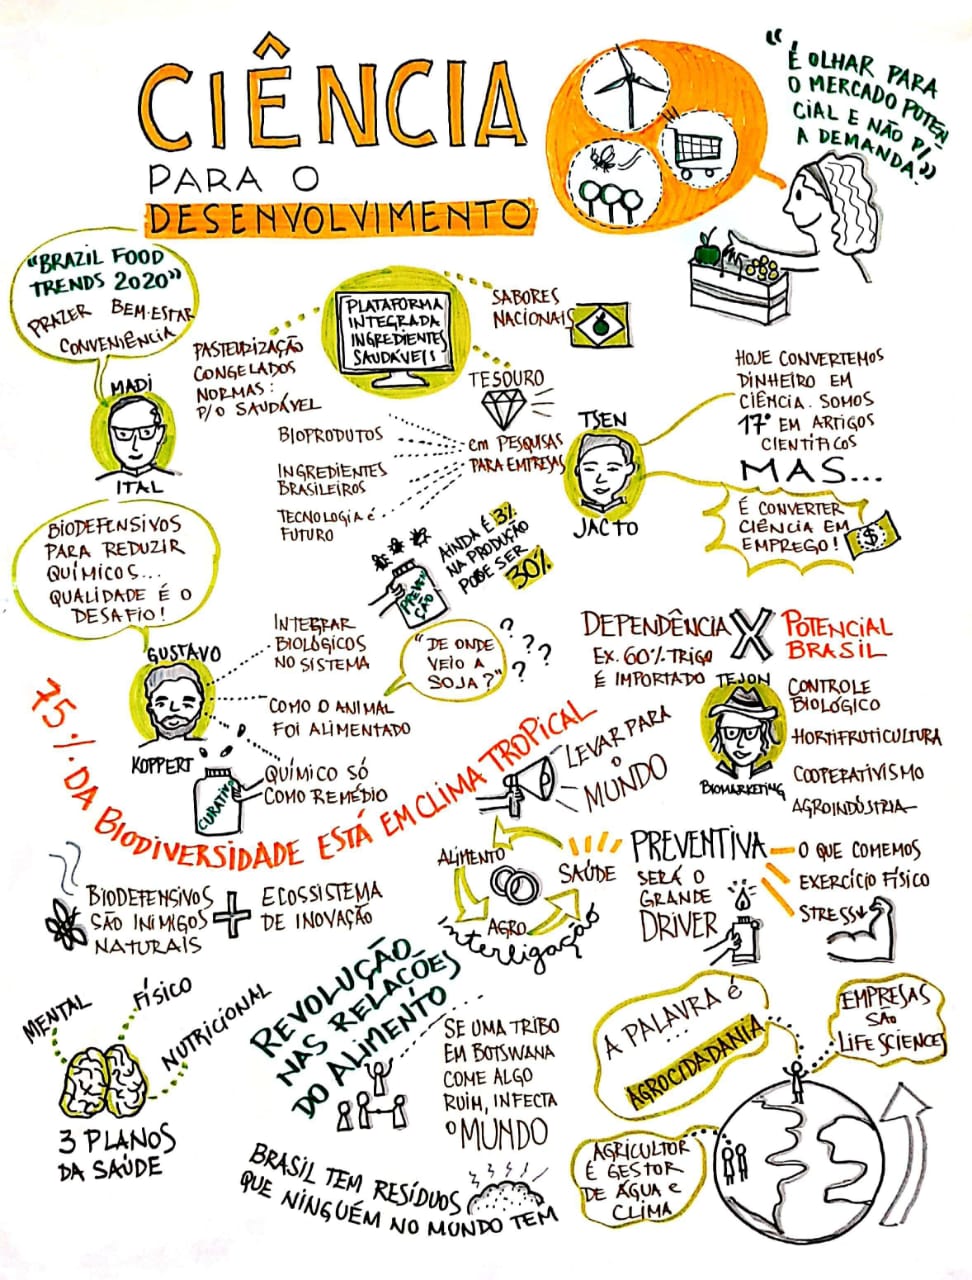 CIÊNCIA
PARA O
DESENVOLVIMENTO
"É OLHAR PARA
O MERCADO POTEN
CIAL E NÃO P/
A DEMANDA."
"BRAZIL FOOD
TRENDS 2020"
PRAZER BEM-ESTAR
CONVENIÊNCIA
MADI
ITAL
PASTEURIZAÇÃO
CONGELADOS
NORMAS:
P/O SAUDÁVEL
PLATAFORMA
INTEGRADA
INGREDIENTES
SAUDÁVEIS
SABORES
NACIONAIS
TESOURO
em PESQUISAS
PARA EMPRESAS
BIOPRODUTOS
INGREDIENTES
BRASILEIROS
TECNOLOGIA é
FUTURO
TSEN
JACTO
HOJE CONVERTEMOS
DINHEIRO EM
CIÊNCIA. SOMOS
17º EM ARTIGOS
CIENTÍFICOS
MAS...
É CONVERTER
CIÊNCIA EM
EMPREGO!
$
BIODEFENSIVOS
PARA REDUZIR
QUÍMICOS...
QUALIDADE É O
DESAFIO!
GUSTAVO
KOPPERT
PREVEN
ÇÃO
AINDA É 3%
NA PRODUÇÃO
PODE SER
30%
INTEGRAR
BIOLÓGICOS
NO SISTEMA
COMO O ANIMAL
FOI ALIMENTADO
QUÍMICO SÓ
COMO REMÉDIO
CURATIVO
"DE ONDE
VEIO A
SOJA?"
? ? ? ?
DEPENDÊNCIA X POTENCIAL
BRASIL
EX. 60% TRIGO
É IMPORTADO
TEJON
BIOMARKETING
CONTROLE
BIOLÓGICO
HORTIFRUTICULTURA
COOPERATIVISMO
AGROINDÚSTRIA
75% DA BIODIVERSIDADE ESTÁ EM CLIMA TROPICAL
LEVAR PARA
O
MUNDO
BIODEFENSIVOS
SÃO INIMIGOS
NATURAIS
+
ECOSSISTEMA
DE INOVAÇÃO
ALIMENTO
SAÚDE
AGRO
interligações
PREVENTIVA
SERÁ O
GRANDE
DRIVER
O QUE COMEMOS
EXERCÍCIO FÍSICO
STRESS
MENTAL
FÍSICO
NUTRICIONAL
3 PLANOS
DA SAÚDE
REVOLUÇÃO
NAS RELAÇÕES
DO ALIMENTO
SE UMA TRIBO
EM BOTSWANA
COME ALGO
RUIM, INFECTA
O MUNDO
BRASIL TEM RESÍDUOS
QUE NINGUÉM NO MUNDO TEM
A PALAVRA É
AGROCIDADANIA
EMPRESAS
SÃO
LIFE SCIENCE
AGRICULTOR
É GESTOR
DE ÁGUA e
CLIMA